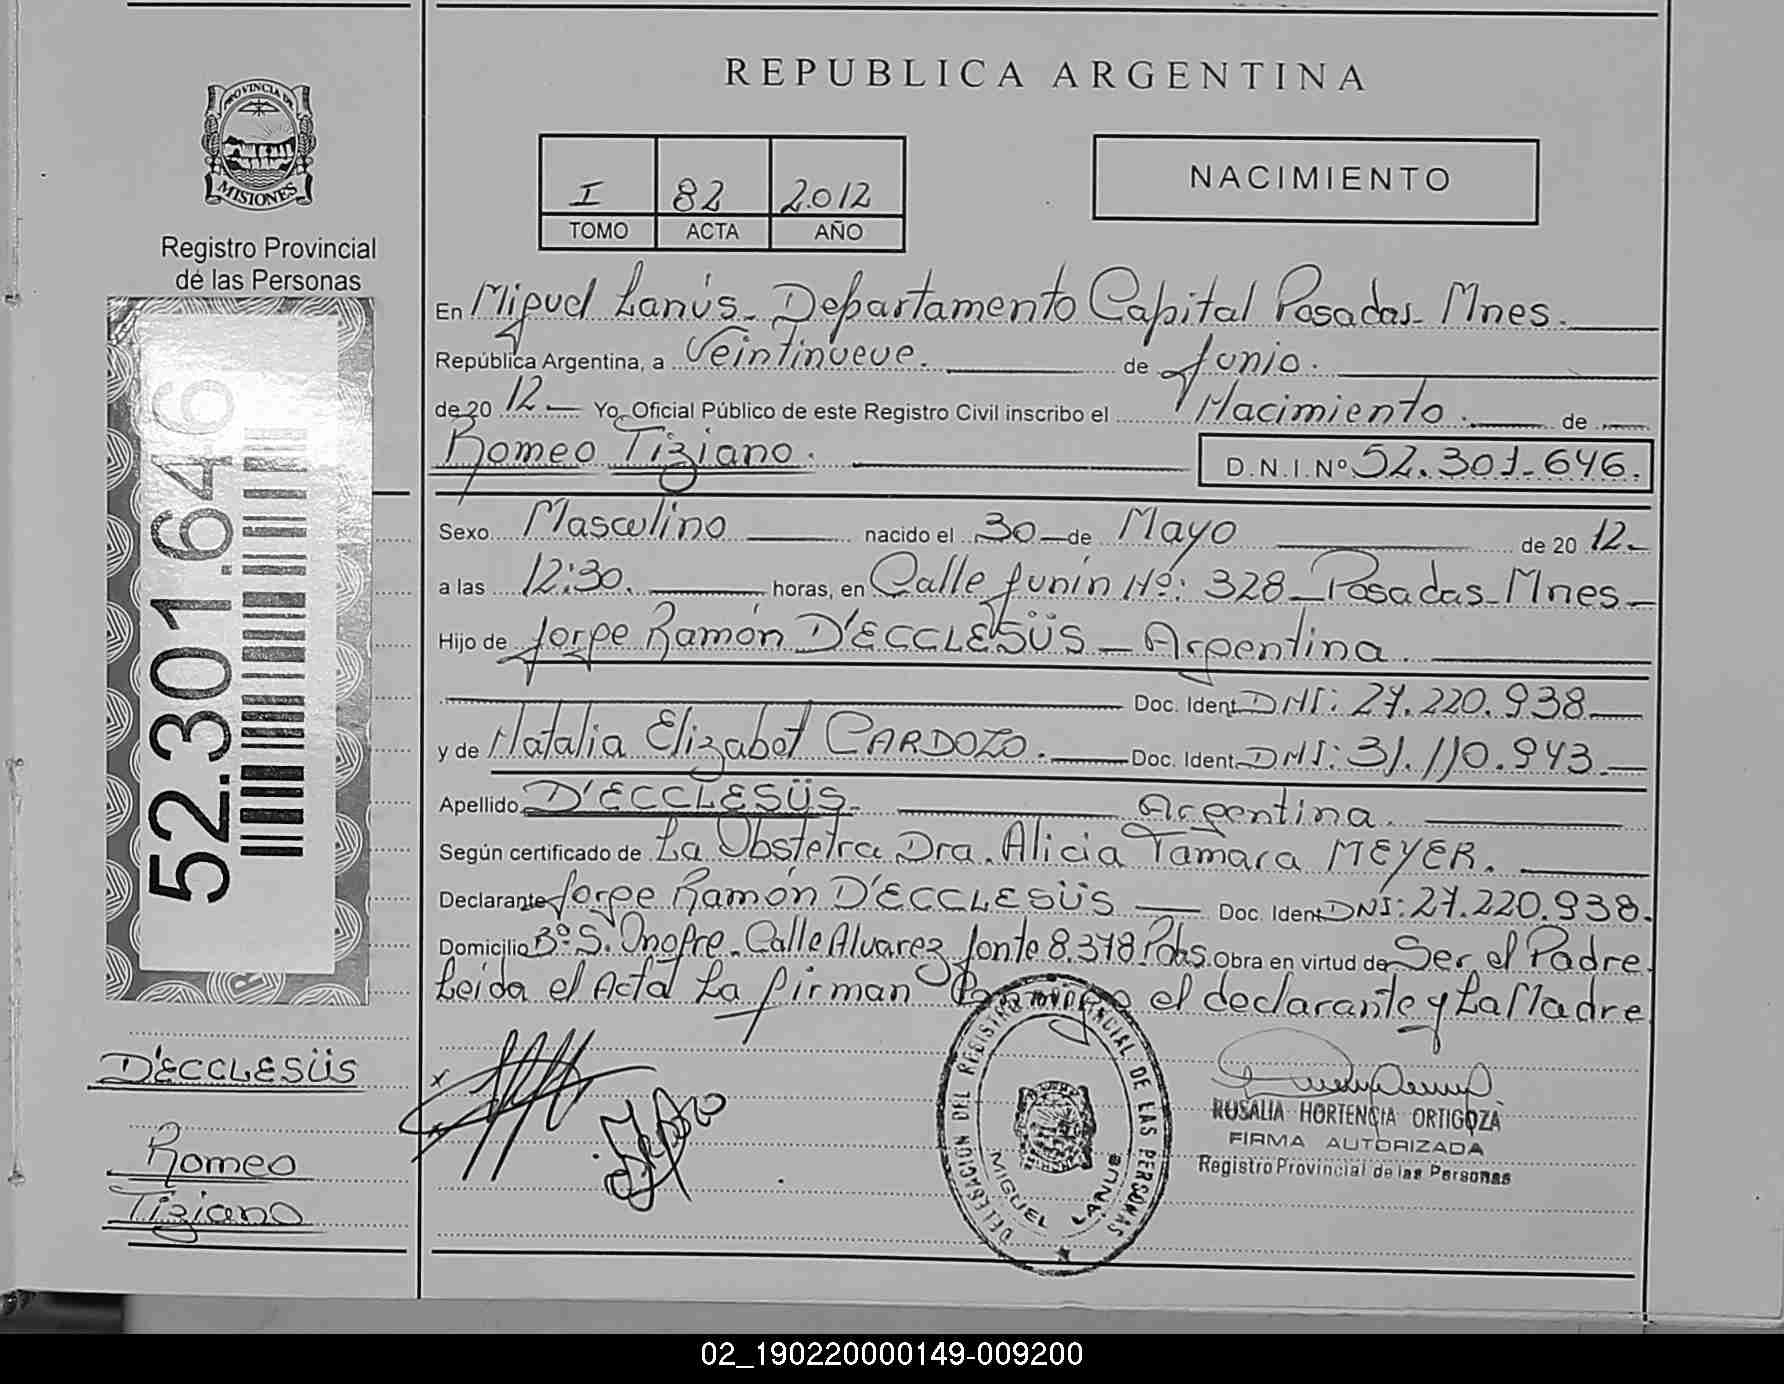 REPUBLICA ARGENTINA
PROVINCIA DE
MISIONES
Registro Provincial
de las Personas
I 82 2012
TOMO ACTA AÑO
NACIMIENTO
52.301.646
En Miguel Lanús - Departamento Capital Posadas - Mnes.
República Argentina, a Veintinueve. de Junio.
de 20 12 - Yo, Oficial Público de este Registro Civil inscribo el Nacimiento. de
Romeo Tiziano. D.N.I.Nº 52.301.646.
Sexo Masculino nacido el 30 de Mayo de 20 12.-
a las 12:30. horas, en Calle Junín Nº: 328 - Posadas - Mnes -
Hijo de Jorge Ramón D'ECCLESÜS - Argentina.
Doc. Ident. DNI: 27.220.938
y de Natalia Elizabet CARDOZO. Doc. Ident. DNI: 31.110.943.
Apellido D'ECCLESÜS - Argentina.
Según certificado de La Obstetra Dra. Alicia Tamara MEYER.
Declarante Jorge Ramón D'ECCLESÜS Doc. Ident. DNI: 27.220.938.
Domicilio Bº S. Onofre. Calle Alvarez Jonte 8.378 Pdas. Obra en virtud de Ser el Padre.
Leida el Acta La firman Conmigo el declarante y La Madre
D'ECCLESÜS
Romeo
Tiziano
DELEGACION DEL REGISTRO PROVINCIAL DE LAS PERSONAS
MIGUEL LANUS
ROSALIA HORTENCIA ORTIGOZA
FIRMA AUTORIZADA
Registro Provincial de las Personas
02_190220000149-009200